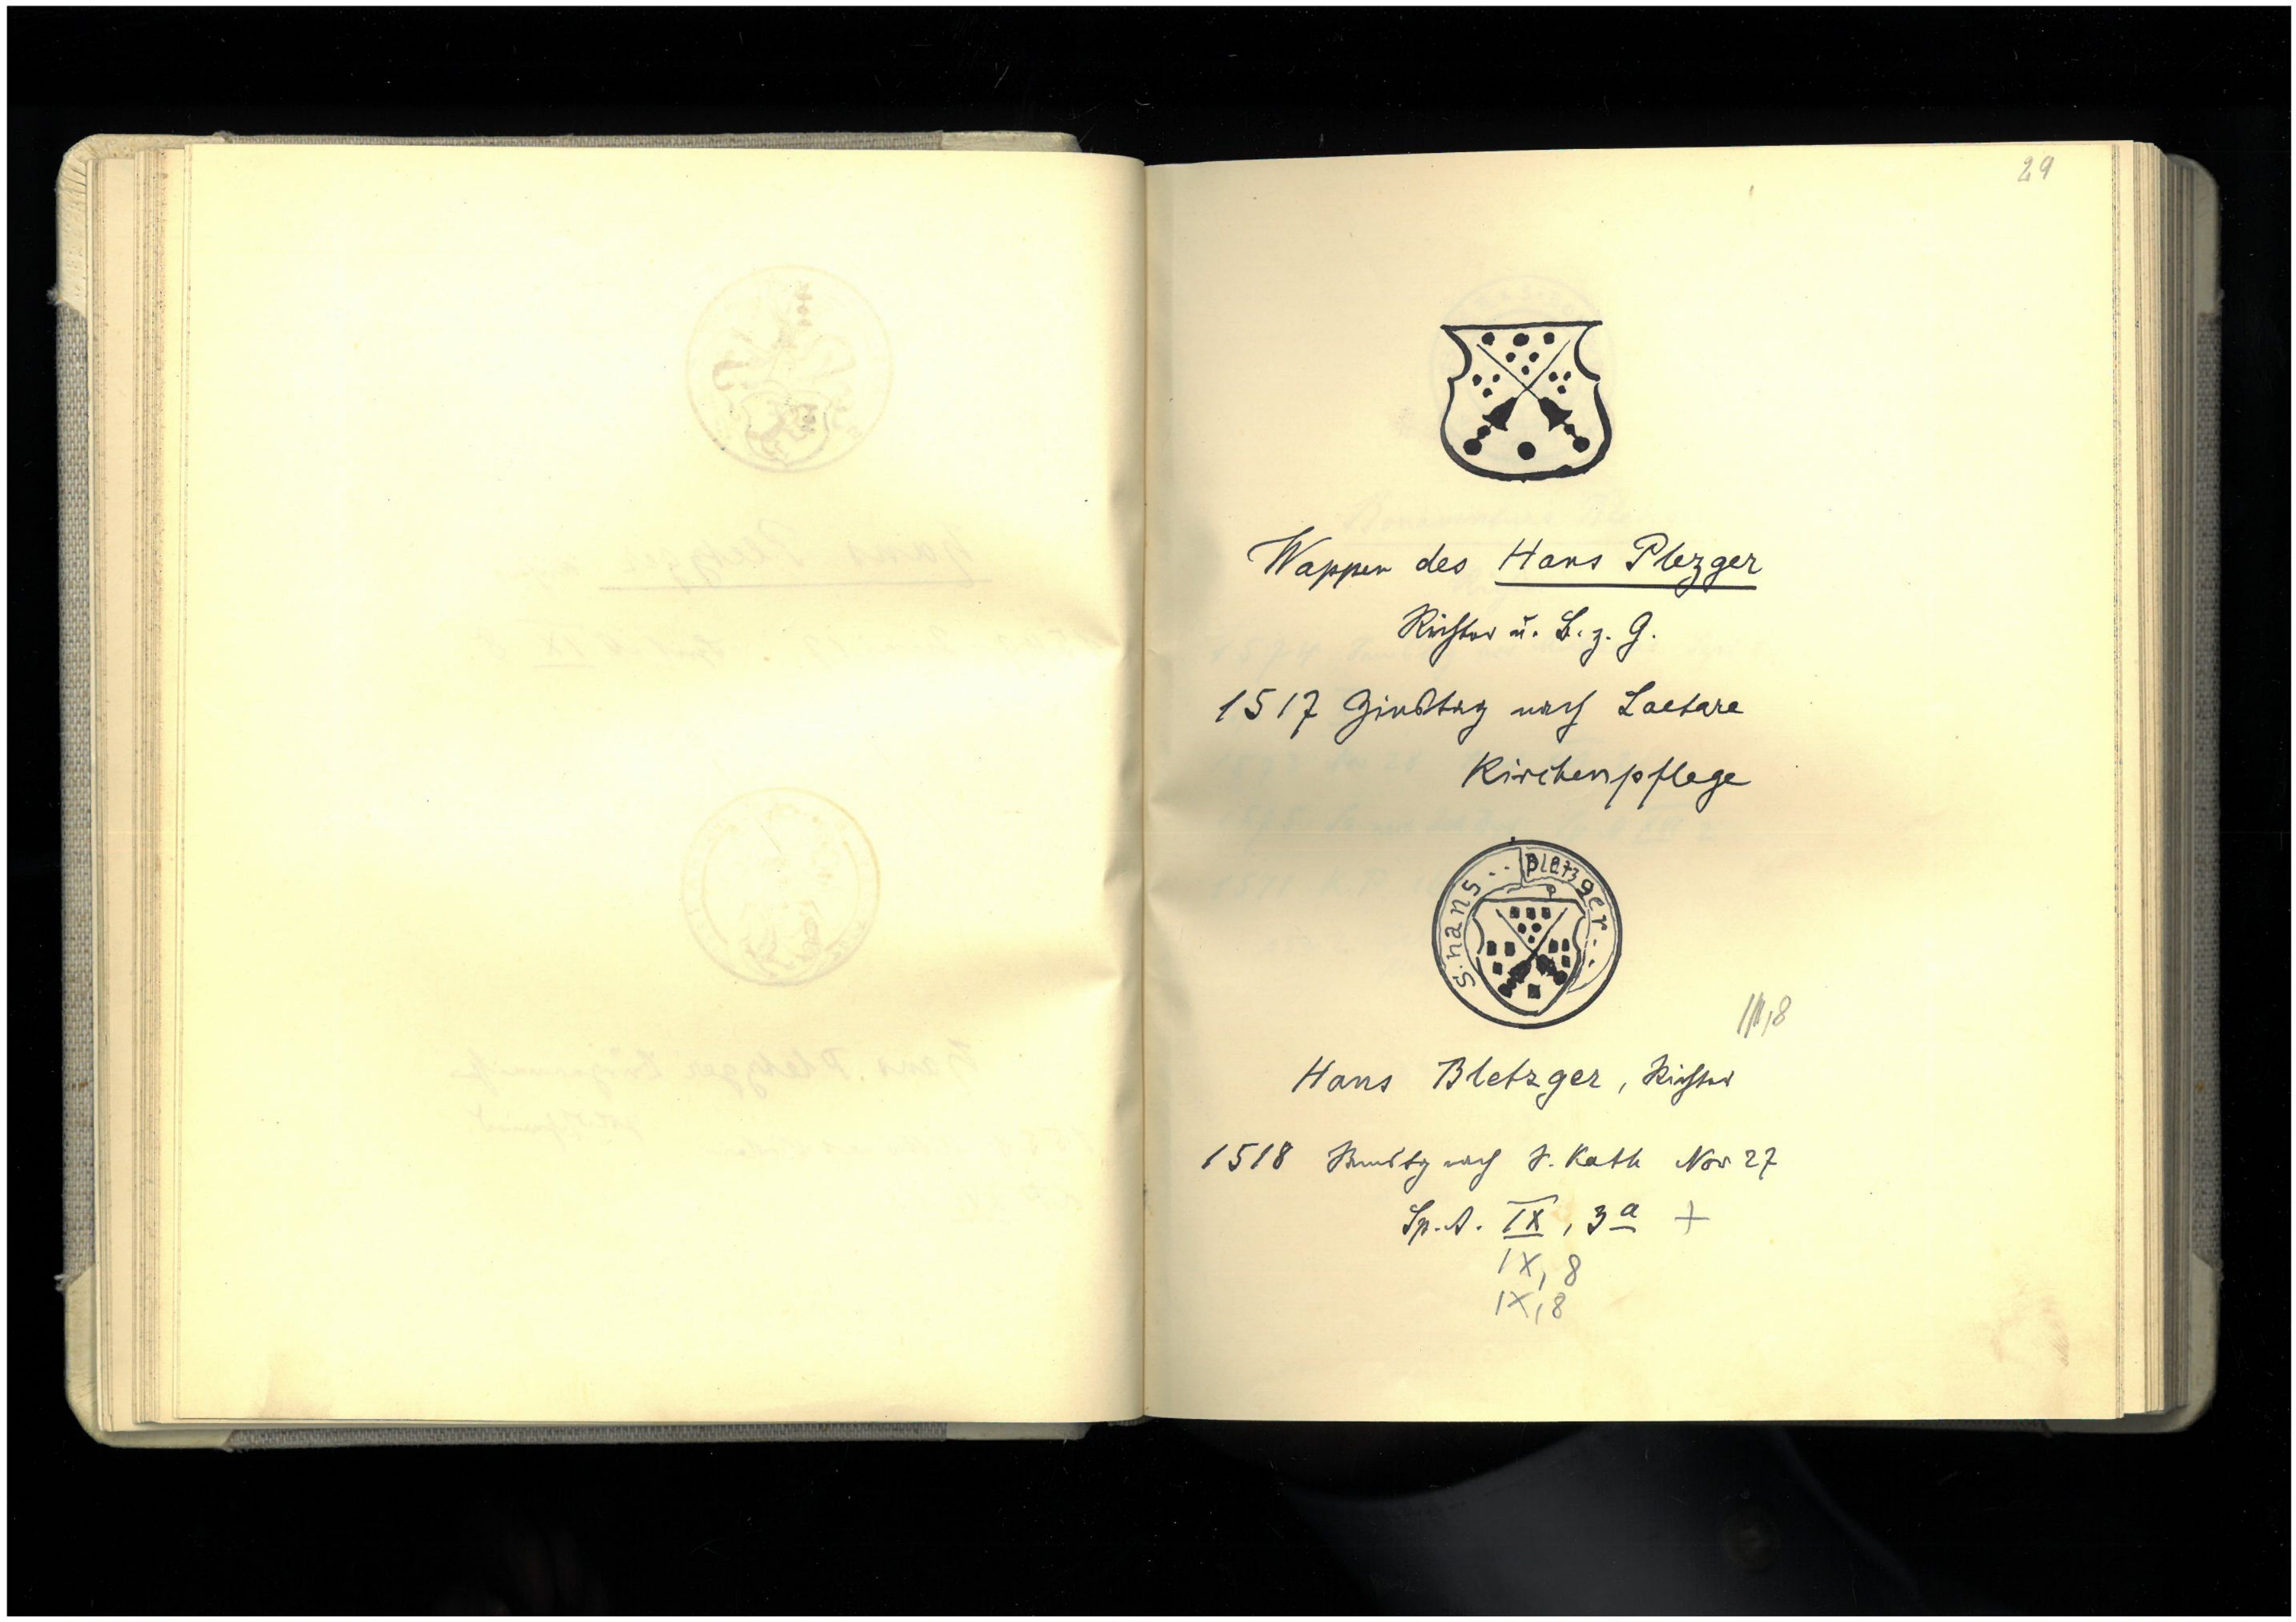 29
Wappen des Hans Plezger
Richter u. B. z. G.
1517 Zinstag nach Laetare
Kirchenpflege
S. hans pletzger
III,8
Hans Bletzger, Richter
1518 Samstg nach S. Kath Nov 27
Sp. A. IX, 3a +
IX, 8
IX, 8